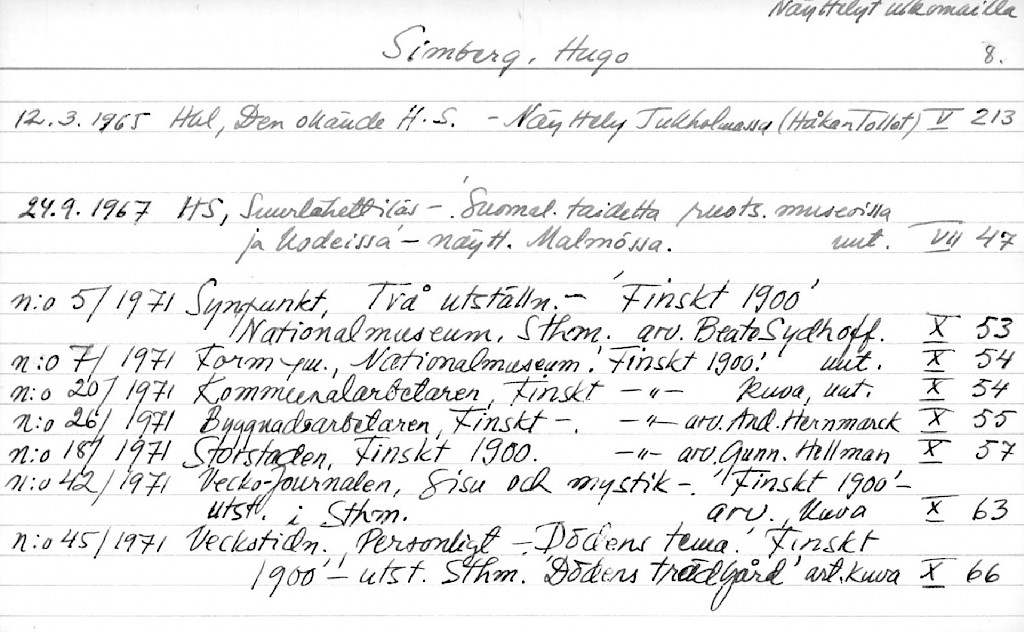 Näyttelyt ulkomailla
Simberg, Hugo 8.
12.3.1965 Hbl, Den okände H.S. - Näyttely Tukholmassa (Håkan Tollet) V 213
24.9.1967 HS, Suurlähettiläs - 'Suomal. taidetta ruots. museoissa
ja kodeissa' - näytt. Malmössa. uut. VII 47
n:o 5/1971 Synpunkt, Två utställn. - 'Finskt 1900'
Nationalmuseum, Sthm. arv. Beate Sydhoff. X 53
n:o 7/1971 Form , Nationalmuseum 'Finskt 1900'. uut. X 54
n:o 20/1971 Kommunalarbetaren, Finskt -"- kuva, uut. X 54
n:o 26/1971 Byggnadsarbetaren, Finskt -. -"- arv. And. Hernmarck X 55
n:o 18/1971 Storstaden, Finskt 1900. -"- arv. Gunn. Hellman X 57
n:o 42/1971 Vecko-Journalen, Sisu och mystik -. 'Finskt 1900' -
utst. i Sthm. arv., kuva X 63
n:o 45/1971 Veckotidn. Personligt - Dödens tema. 'Finskt
1900' - utst. Sthm. 'Dödens trädgård' art. kuva X 66